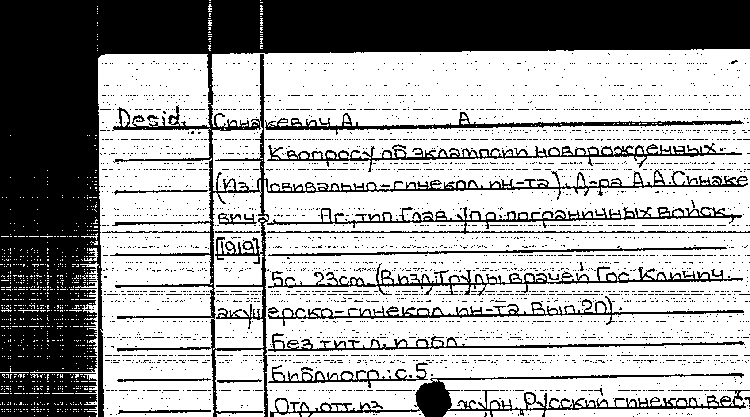 Desid. Синакевич, А. А.
К вопросу об эклампсии новорожденных.
(Из Повивально-гинекол. ин-та). Д-ра А.А.Синаке
вича. Пг., тип. Глав. упр. пограничных войск,
[1919]
5с. 23см. (В изд: Труды врачей Гос. Клинич.
акушерско-гинекол. ин-та. Вып. 20).
Без тит. л. и обл.
Библиогр.: с. 5.
Отд. отт. из журн. Русский гинекол. вес